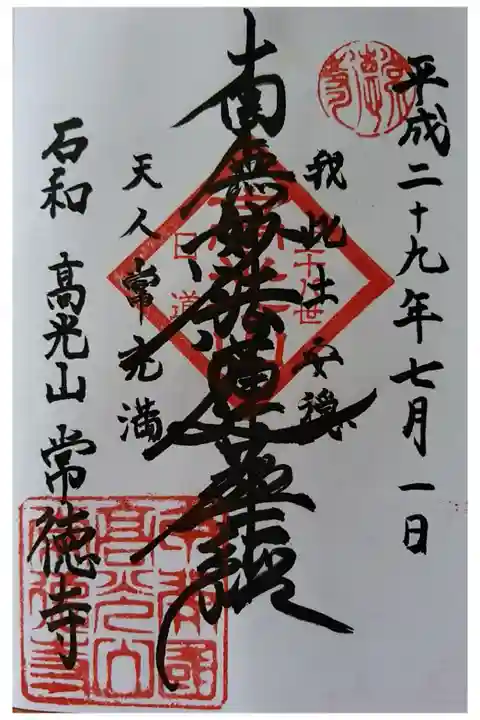 平成二十九年七月一日
我此土安穏
南無妙法蓮華経
天人常充満
石和 高光山 常徳寺